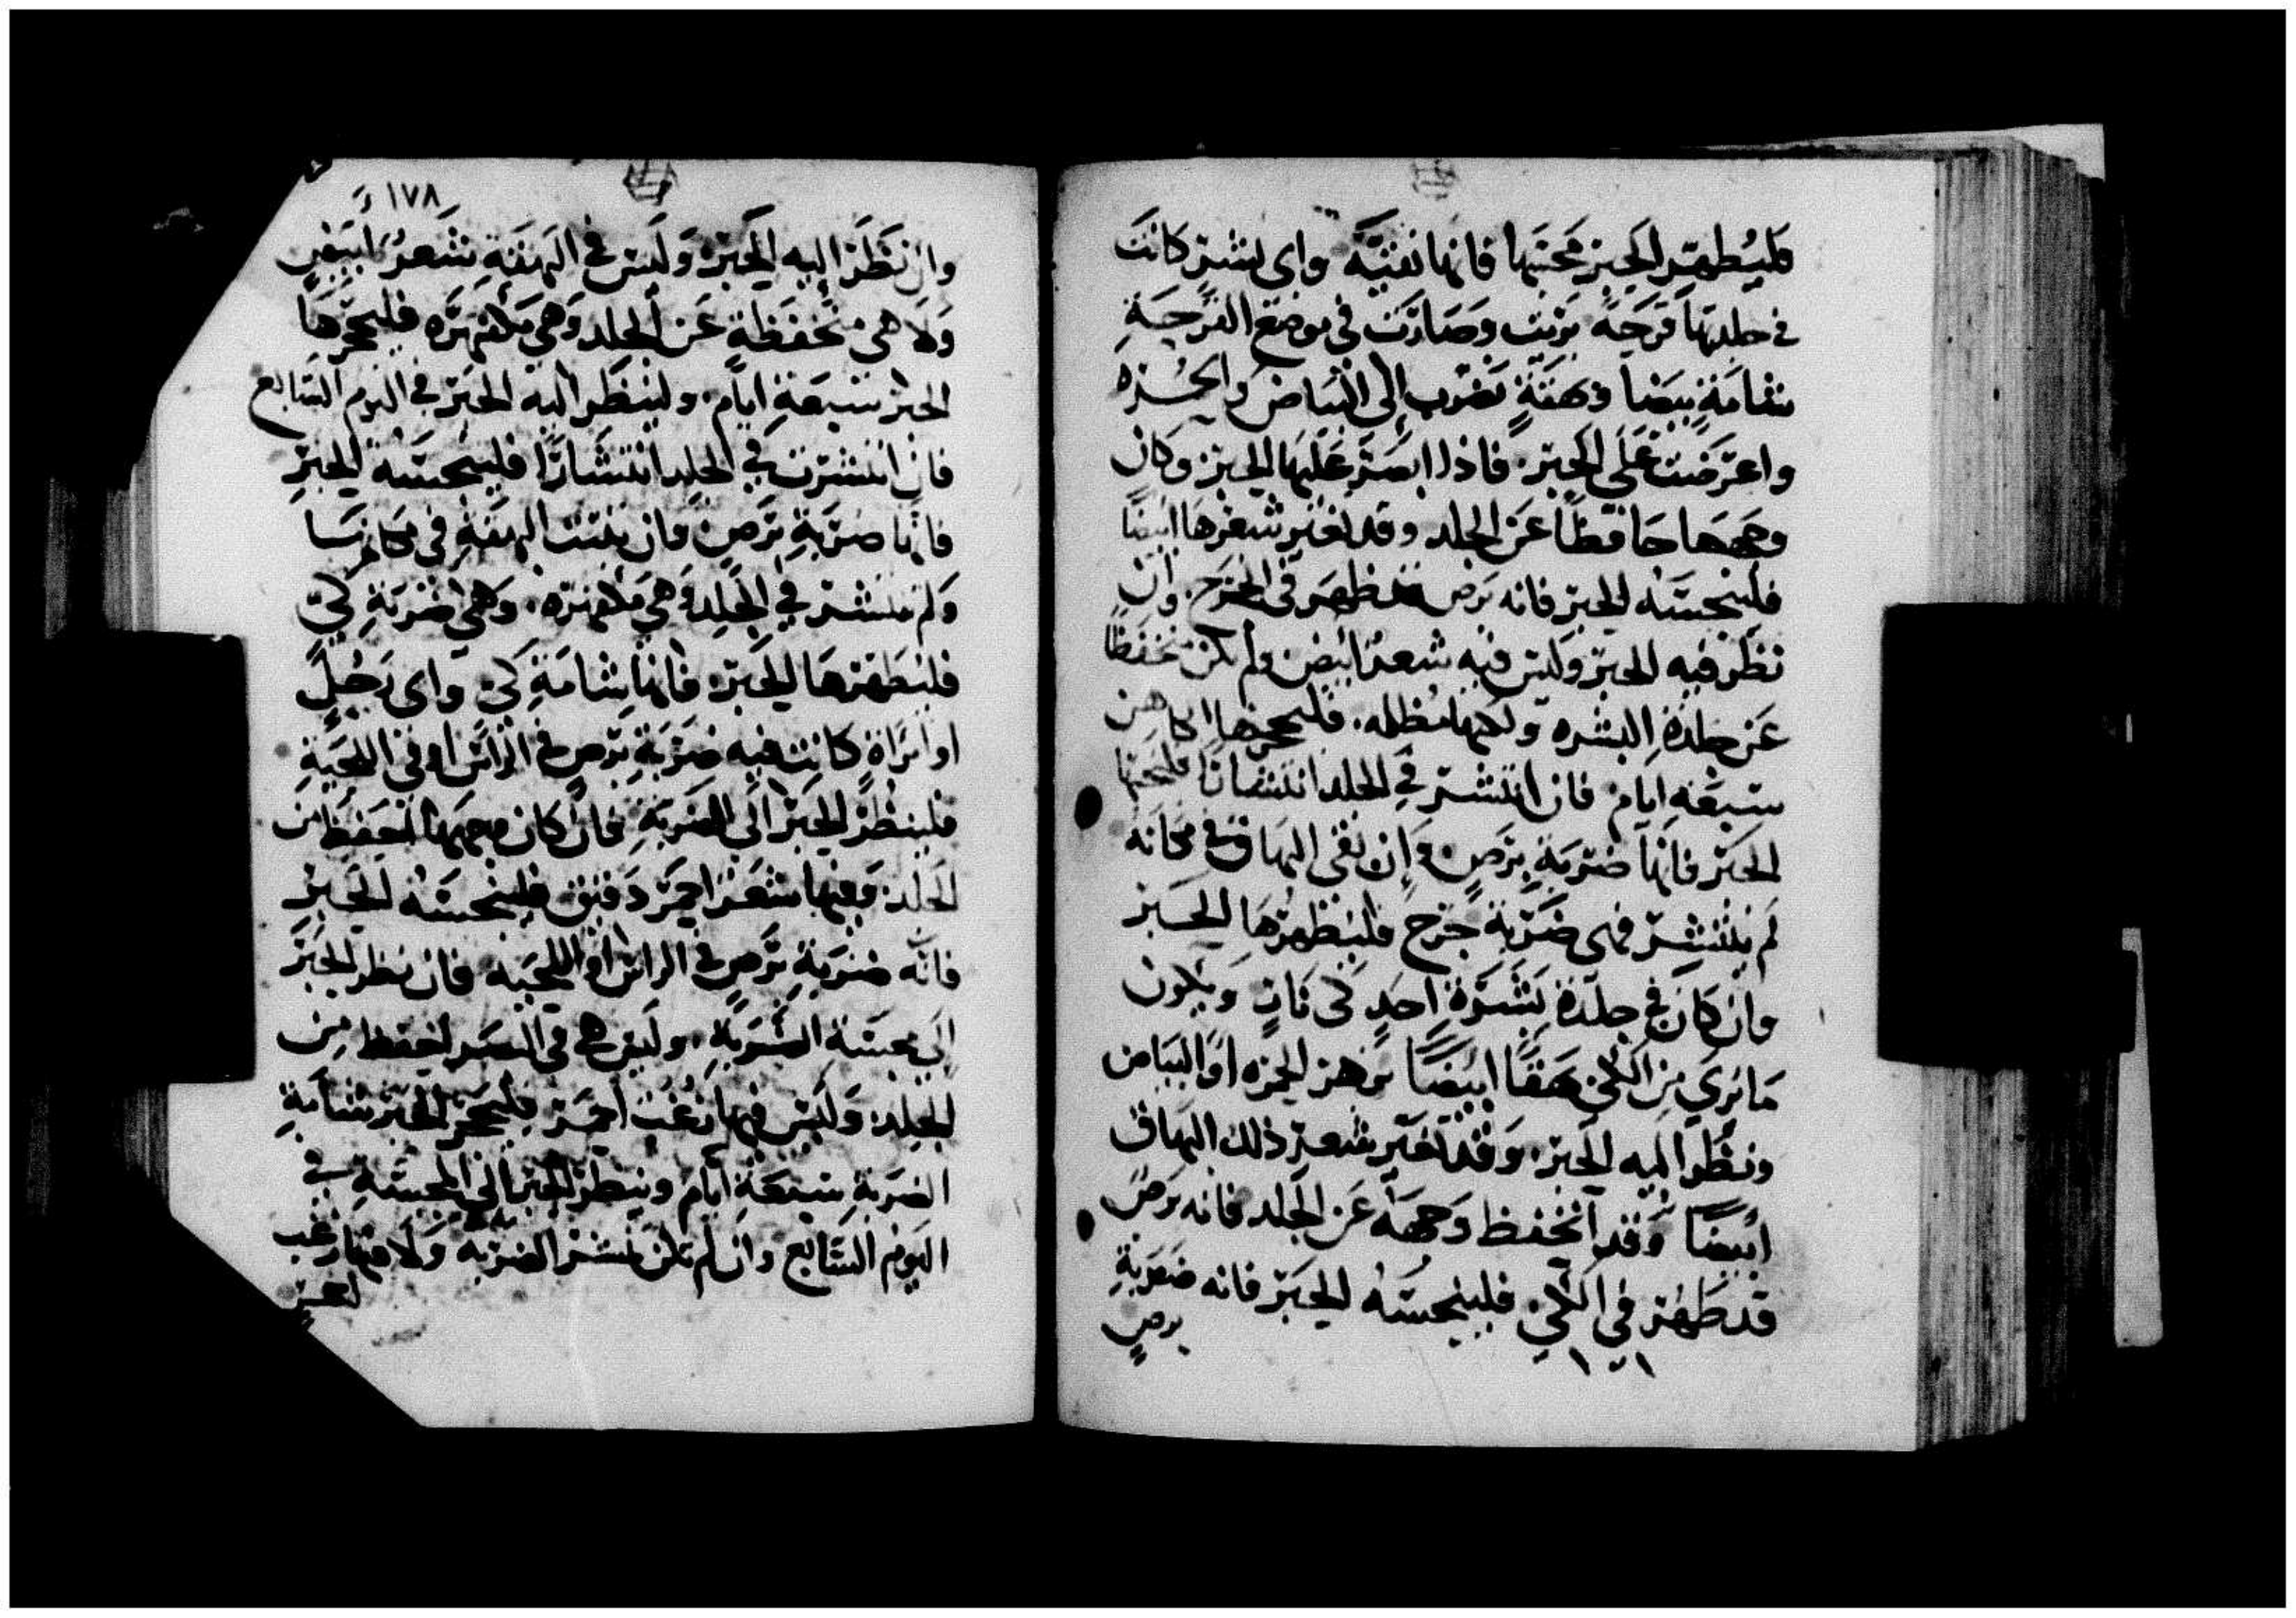 فليُطهّر الحبر مجنبها فانها نقيّة واى بشر كانت
في جلدتها قرحة برئت وصارت في موضع القرحة
شامة بيضا وبهقة تضرب إلى البياض والحمره
واعترضت على الحبر فاذا ابصر عليها الحبر وكان
وجهها حافظًا عن الجلد وقد تغير شعرها ابيضًا
فلينجسه الحبر فانه برص قد ظهر في الجرح وان
نظر فيه الحبر وليس فيه شعرًا ابيض ولم يكن منخفظًا
عن جلدة البشره ولكنها مظلمه فليحجزها الكاهن
سبعة ايام فان انتشر في الجلد انتشارًا فلينجسها
الحبر فانها ضربة برص وإن بقى البهاق في مكانه
لم ينتشر فهى ضربة جرح فليطهرها الحبر
وان كان في جلدة بشرة احد كى نار ويكون
ما برى من الكى بهقًا ابيضًا تزهر الحمره او البياض
ونظر اليه الحبر وقد تغير شعر ذلك البهاق
ابيضًا وقد انخفظ وجهه عن الجلد فانه برص
قد ظهر في الكى فلينجسه الحبر فانه ضربة
برص
١٧٨
وان نظر اليه الحبر وليس في البهقة شعرًا ابيض
ولا هى منخفظة عن الجلد وهى مكمهره فليحجزها
الحبر سبعة ايام ولينظر اليه الحبر في اليوم السابع
فان انتشرت في الجلد انتشارًا فلينجسه الحبر
فانها ضربة برص وان ثبتت البهقة في مكانها
ولم تنتشر في الجلد وهى مكمهره وهى ضربة كى
فليطهرها الحبر فانها شامة كى واى رجل
او امراة كانت فيه ضربة برص في الراس او في اللحية
فلينظر الحبر الى الضربة فان كان وجهها انخفظ من
الجلد وفيها شعر احمر دقيق فلينجسه الحبر
فانه ضربة برص في الراس او اللحيه فان نظر الحبر
الى مجسة الضربة وليس هى في البصر انخفظ من
الجلد وليس فيها زغب احمر فليحجز الحبر شامة
الضربة سبعة ايام وينظر الحبر الى المجسة في
اليوم السابع وان لم تكن تنتشر الضربه ولا فيها زغب
احمر